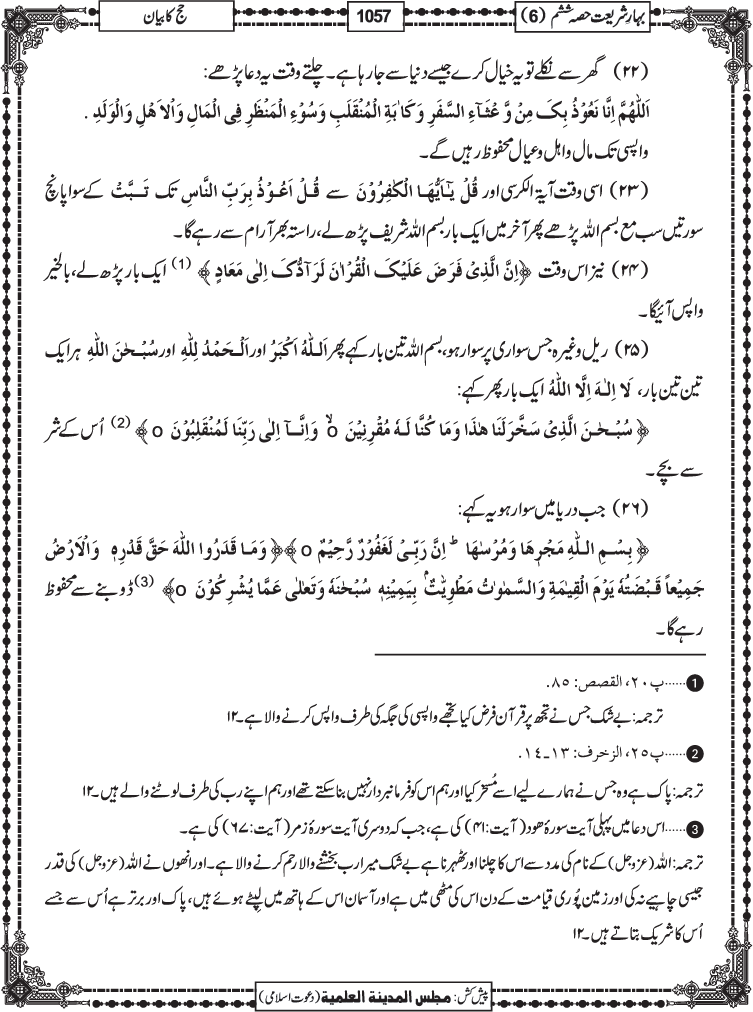 بہارِ شریعت حصہ ششم (6)
1057
حج کا بیان
(۲۲) گھر سے نکلے تو یہ خیال کرے جیسے دنیا سے جارہا ہے۔ چلتے وقت یہ دعا پڑھے:
اَللّٰهُمَّ اِنَّا نَعُوْذُ بِکَ مِنْ وَّعْثَآءِ السَّفَرِ وَکَاٰبَةِ الْمُنْقَلَبِ وَسُوْءِ الْمَنْظَرِ فِی الْمَالِ وَالْاَهْلِ وَالْوَلَدِ .
واپسی تک مال و اہل و عیال محفوظ رہیں گے۔
(۲۳) اسی وقت آیۃ الکرسی اور قُلْ یٰۤاَیُّهَا الْکٰفِرُوْنَ سے قُلْ اَعُوْذُ بِرَبِّ النَّاسِ تک تَبَّتْ کے سوا پانچ
سورتیں سب مع بسم اللہ پڑھے پھر آخر میں ایک بار بسم اللہ شریف پڑھ لے، راستہ بھر آرام سے رہے گا۔
(۲۴) نیز اس وقت ﴿اِنَّ الَّذِیْ فَرَضَ عَلَیْکَ الْقُرْاٰنَ لَرَآدُّکَ اِلٰی مَعَادٍ ﴾ (1) ایک بار پڑھ لے، بالخیر
واپس آئیگا۔
(۲۵) ریل وغیرہ جس سواری پر سوار ہو، بسم اللہ تین بار کہے پھر اَللّٰهُ اَکْبَرُ اور اَلْحَمْدُ لِلّٰهِ اور سُبْحٰنَ اللّٰهِ ہر ایک
تین تین بار، لَا اِلٰهَ اِلَّا اللّٰهُ ایک بار پھر کہے:
﴿ سُبْحٰنَ الَّذِیْ سَخَّرَلَنَا هٰذَا وَمَا کُنَّا لَهٗ مُقْرِنِیْنَ ۙo وَاِنَّـآ اِلٰی رَبِّنَا لَمُنْقَلِبُوْنَ o ﴾ (2) اُس کے شر
سے بچے۔
(۲۶) جب دریا میں سوار ہو یہ کہے:
﴿ بِسْمِ اللّٰهِ مَجْرٖهَا وَمُرْسٰهَا ؕ اِنَّ رَبِّیْ لَغَفُوْرٌ رَّحِیْمٌ o﴾﴿ وَمَا قَدَرُوا اللّٰهَ حَقَّ قَدْرِهٖ وَالْاَرْضُ
جَمِیْعاً قَبْضَتُهٗ یَوْمَ الْقِیٰمَةِ وَالسَّمٰوٰتُ مَطْوِیّٰتٌۢ بِیَمِیْنِهٖ سُبْحٰنَهٗ وَتَعٰلٰی عَمَّا یُشْرِکُوْنَ o﴾ (3) ڈوبنے سے محفوظ
رہے گا۔
1 ......پ ۲۰، القصص: ۸۵.
ترجمہ: بے شک جس نے تجھ پر قرآن فرض کیا تجھے واپسی کی جگہ کی طرف واپس کرنے والا ہے۔ ۱۲
2 ......پ ۲۵، الزخرف: ۱۳۔۱٤.
ترجمہ: پاک ہے وہ جس نے ہمارے لیے اسے مُسخر کیا اور ہم اس کو فرمانبردار نہیں بنا سکتے تھے اور ہم اپنے رب کی طرف لوٹنے والے ہیں۔ ۱۲
3 ......اس دعا میں پہلی آیت سورۂ هود( آیت: ۴۱) کی ہے، جب کہ دوسری آیت سورۂ زمر( آیت: ۶۷) کی ہے۔
ترجمہ: اللہ (عزوجل) کے نام کی مدد سے اس کا چلنا اور ٹھہرنا ہے بے شک میرا رب بخشنے والا رحم کرنے والا ہے۔ اور انھوں نے اللہ (عزوجل) کی قدر
جیسی چاہیے نہ کی اور زمین پُوری قیامت کے دن اس کی مٹھی میں ہے اور آسمان اس کے ہاتھ میں لپٹے ہوئے ہیں، پاک اور برتر ہے اُس سے جسے
اُس کا شریک بتاتے ہیں۔ ۱۲
پیش کش: مجلس المدینة العلمیة (دعوت اسلامی)